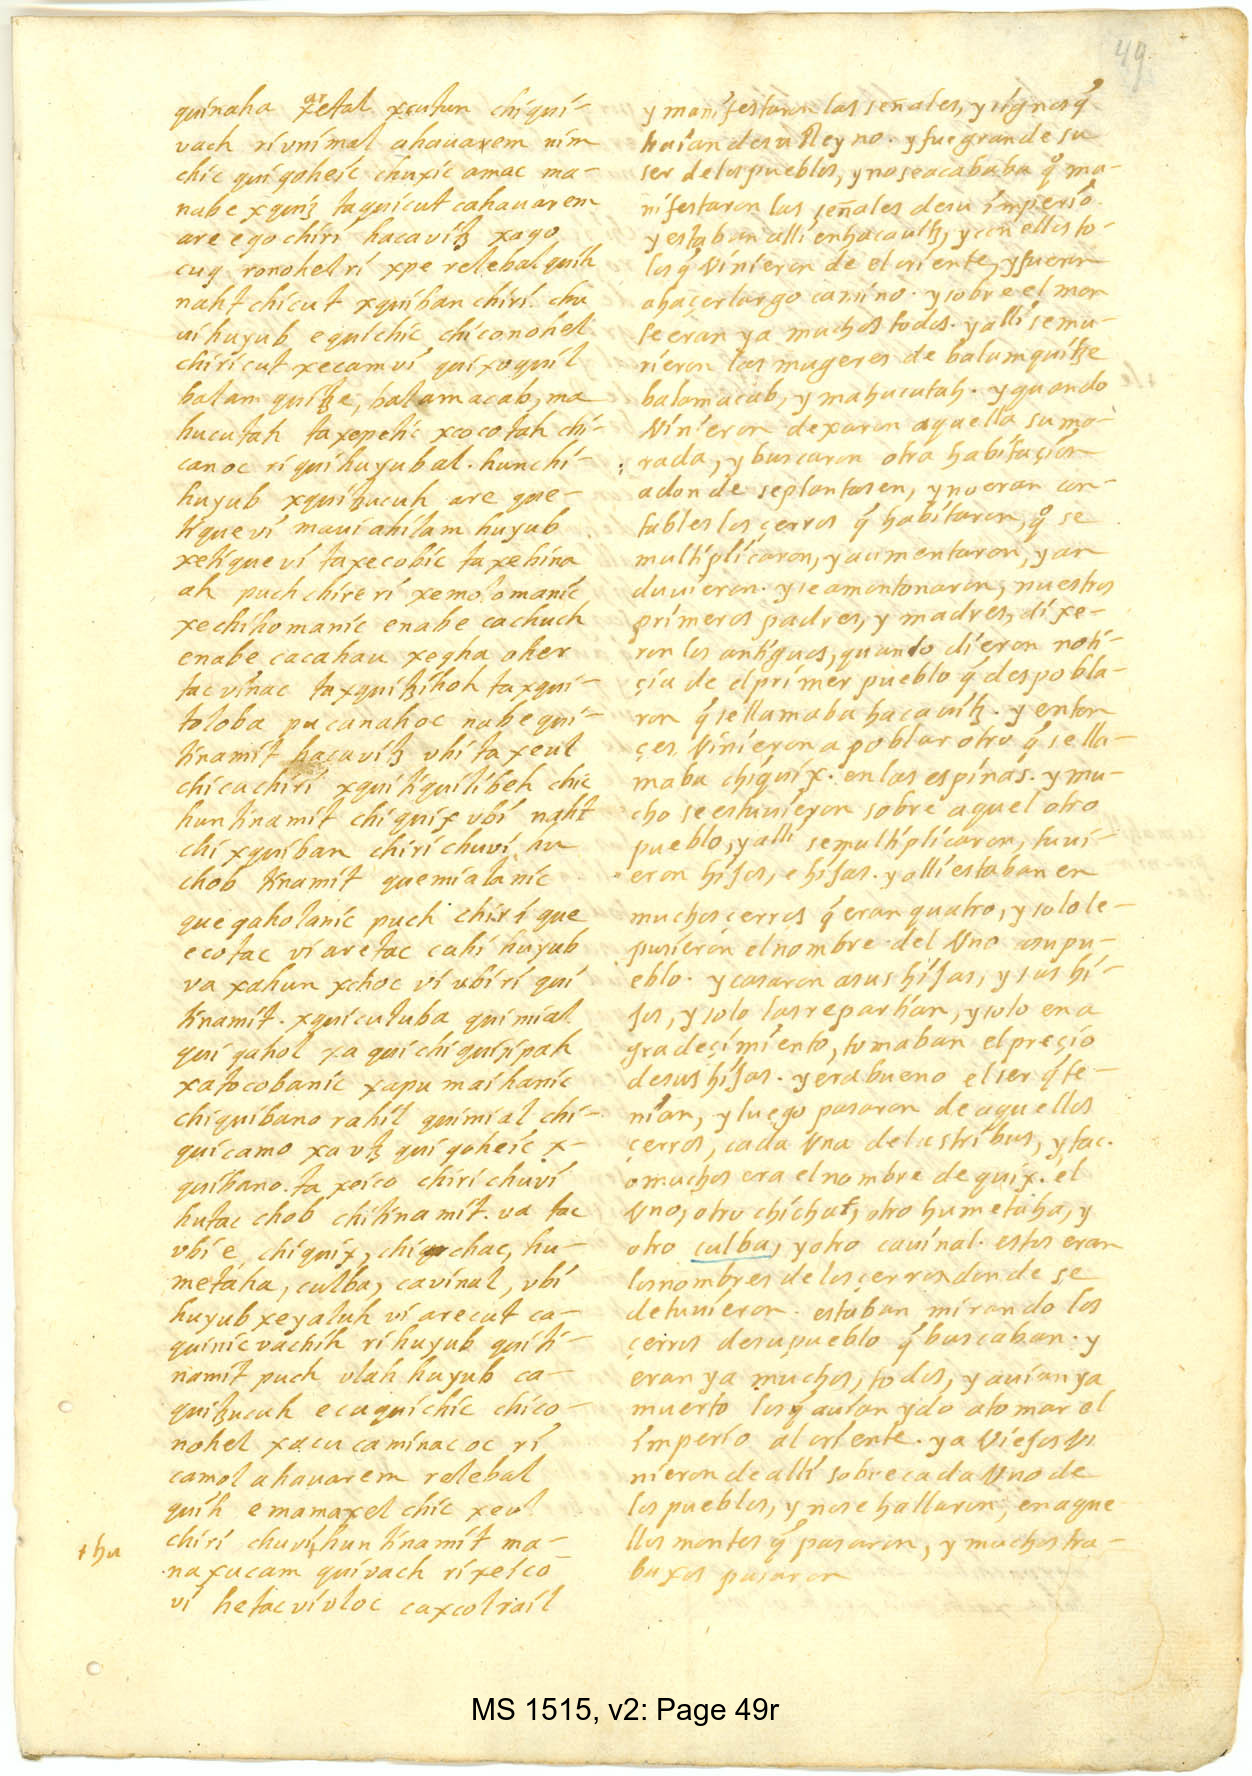 49.
quinaha retal xcutun chiqui-
ar
vach ri vnimal ahauarem nim
chic qui goheic chuxic amac ma-
nabe xquiz ta quicut cahauarem
are ego chiri hacavitz xa go
cuq ronohel ri xpe relebal quih
naht chicut xquiban chiri chu
vi huyub e quichic chiconohel.
chiri cut xecam vi quixoquil
balam quitze, balam acab, ma
hucutah ta xepetic xcocotah chi-
canoc ri quihuyubal. hunchi-
huyub xquitzucuh are que-
tique vi maui ahilam huyub
xetique vi ta xecobic ta xehina
ah puch chire ri xemolomanic
xechihomanic e nabe cachuch
e nabe cacahau xegha oher
tac vinac ta xquitzihoh ta xqui-
toloba pu canahoc nabe qui-
tinamit hacavitz vbi ta xeul
chicu chiri xquitiquilibeh chic
hun tinamit chi quix vbi naht
chi xquiban chiri chuvi hu
chob tinamit quemialanic
quegaholanic puch chiri que
e cotac vi aretac cahi huyub
va xahun xchoc vi vbi ri qui
tinamit. xquicutuba quimial
qui gahol xa qui chiquisipah
xatocobanic xapu maihanic
chiquibano rahil quimial chi-
quicamo xa vtz qui goheic x-
quibano. ta xeico chiri chuvi
hutac chob chi tinamit. va tac
vbi e, chiquix, chichac, hu-
metaha, culba, cavinal, vbi
huyub xeyaluh vi arecut ca-
quinic vachih ri huyub quiti-
namit puch vlah huyub ca-
quitzucuh e cu quichic chico-
nohel xacu caminac oc ri
camol ahauarem relebal
quih e mamaxel chic xeul
chiri chuvi + hun tinamit ma-
+ hu
na xucam quivach ri xeico
vi hetac vi vloc caxcol rail
y manifestaron las señales, y signos q̃
haian de su Reyno. y fue grande su
ser de los pueblos, y no se acababa qº ma-
nifestaron las señales de su imperio.
y estaban alli en hacauitz, y con ellos to-
los q̃ Vinieron de el oriente, y fueron
a haçer largo camino. y sobre el mon
te eran ya muchos todos. y alli se mu-
rieron las mugeres de balamquitze
balamacab, y mahucutah. y quando
Vinieron dexaron aquella su mo-
rada, y buscaron otra habitaçion
adonde se plantasen, y no eran con-
tables los çerros q̃ habitaron, qº se
multiplicaron, y aumentaron, y an
duuieron. y se amontonaron, nuestros
primeros padres, y madres, dixe-
ron los antiguos, quando dieron noti-
çia de el primer pueblo q̃ despobla-
ron q̃ se llamaba hacauitz. y enton
çes Vinieron a poblar otro q̃ se lla-
maba chiquix. en las espinas. y mu-
cho se estuuieron sobre aquel otro
pueblo, y alli se multiplicaron, tuui-
eron hijos, e hijas. y alli estaban en
muchos çerros q̃ eran quatro, y solo le-
pusieron el nombre del Vno a su pu-
eblo. y casaron a sus hijas, y sus hi-
jos, y solo las repartian, y solo en a
gradeçimiento, tomaban el preçio
de sus hijas. y era bueno el ser q̃ te-
nian, y luego pasaron de aquellos
çerros, cada Vna de las tribus, y fac.
o muchos era el nombre de quix. el
Vno, otro chichat, otro humetaha, y
otro culba, y otro cauinal. estos eran
los nombres de los çerros donde se
detuuieron. estaban mirando los
çerros de su pueblo q̃ buscaban. y
eran ya muchos, todos, y auian ya
muerto los q̃ auian ydo a tomar el
imperio al oriente. ya Viejos Vi
nieron de alli sobre cada Vno de
los pueblos, y no se hallaron, en aque
llos montes q̃ pasaron, y muchos tra-
baxos pasaron
MS 1515, v2: Page 49r